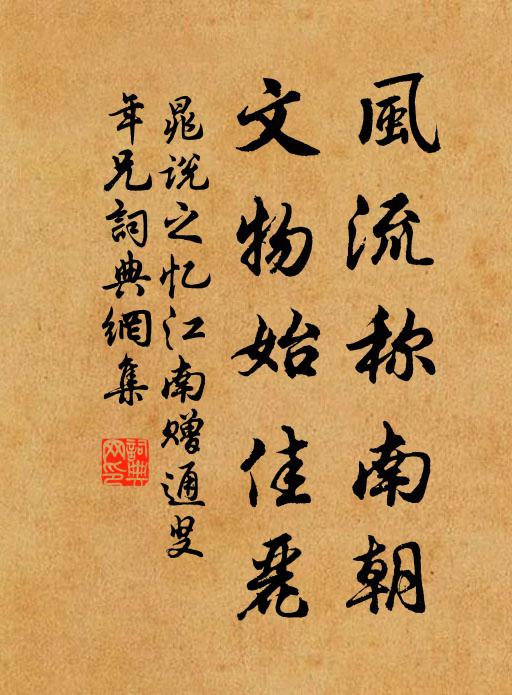 風流称南朝
文物始佳麗
晁说之忆江南赠通叟
年兄詞典網集
詞典网印